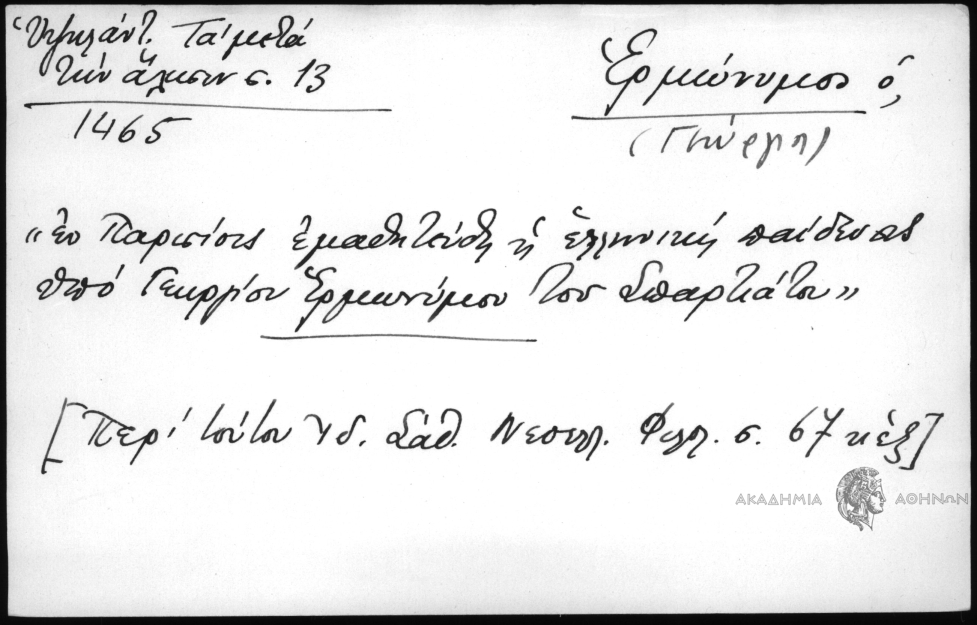 Ὑψηλάντ. Τά μετά
τήν ἅλωσιν σ. 13
1465
Ἑρμώνυμος ὁ,
(Γεώργη)
«ἐν Παρισίοις ἐμαθητεύθη ἡ ἑλληνική παίδευσις
ὑπό Γεωργίου Ἑρμωνύμου τοῦ Σπαρτιάτου»
[Περί τούτου ἰδ. Σάθ. Νεοελλ. Φιλολ. σ. 67 κ ἑξ]
ΑΚΑΔΗΜΙΑ ΑΘΗΝΩΝ